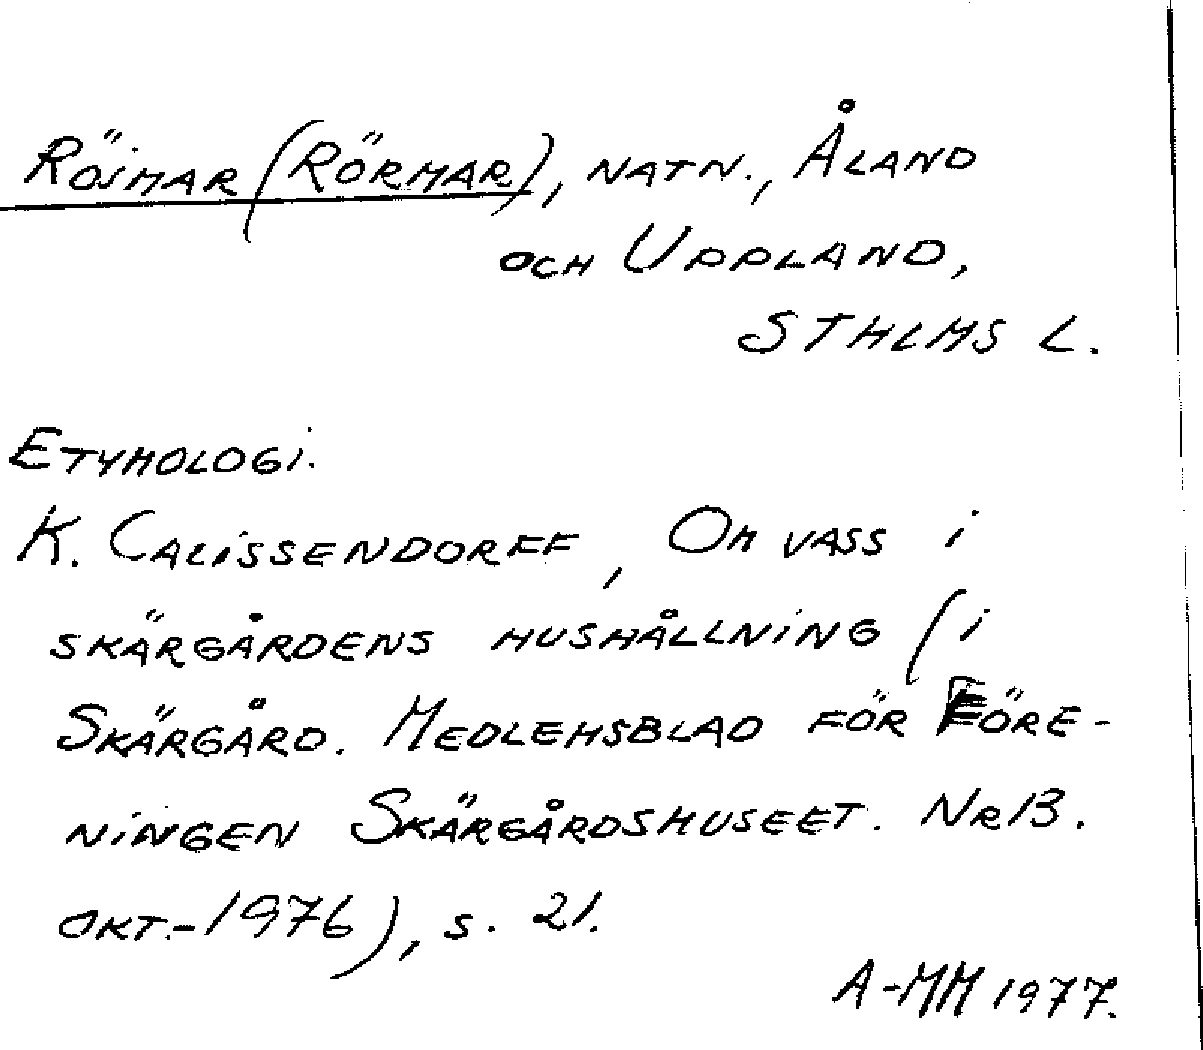 Rösmar (Rörmar), natn., Åland
och Uppland,
Sthlms l.
Etymologi.
K. Calissendorff, Om vass i
skärgårdens hushållning (i
Skärgård. Medlemsblad för Före-
ningen Skärgårdshuseet. Nr 13.
okt.-1976), s. 21.
A-MM 1977.